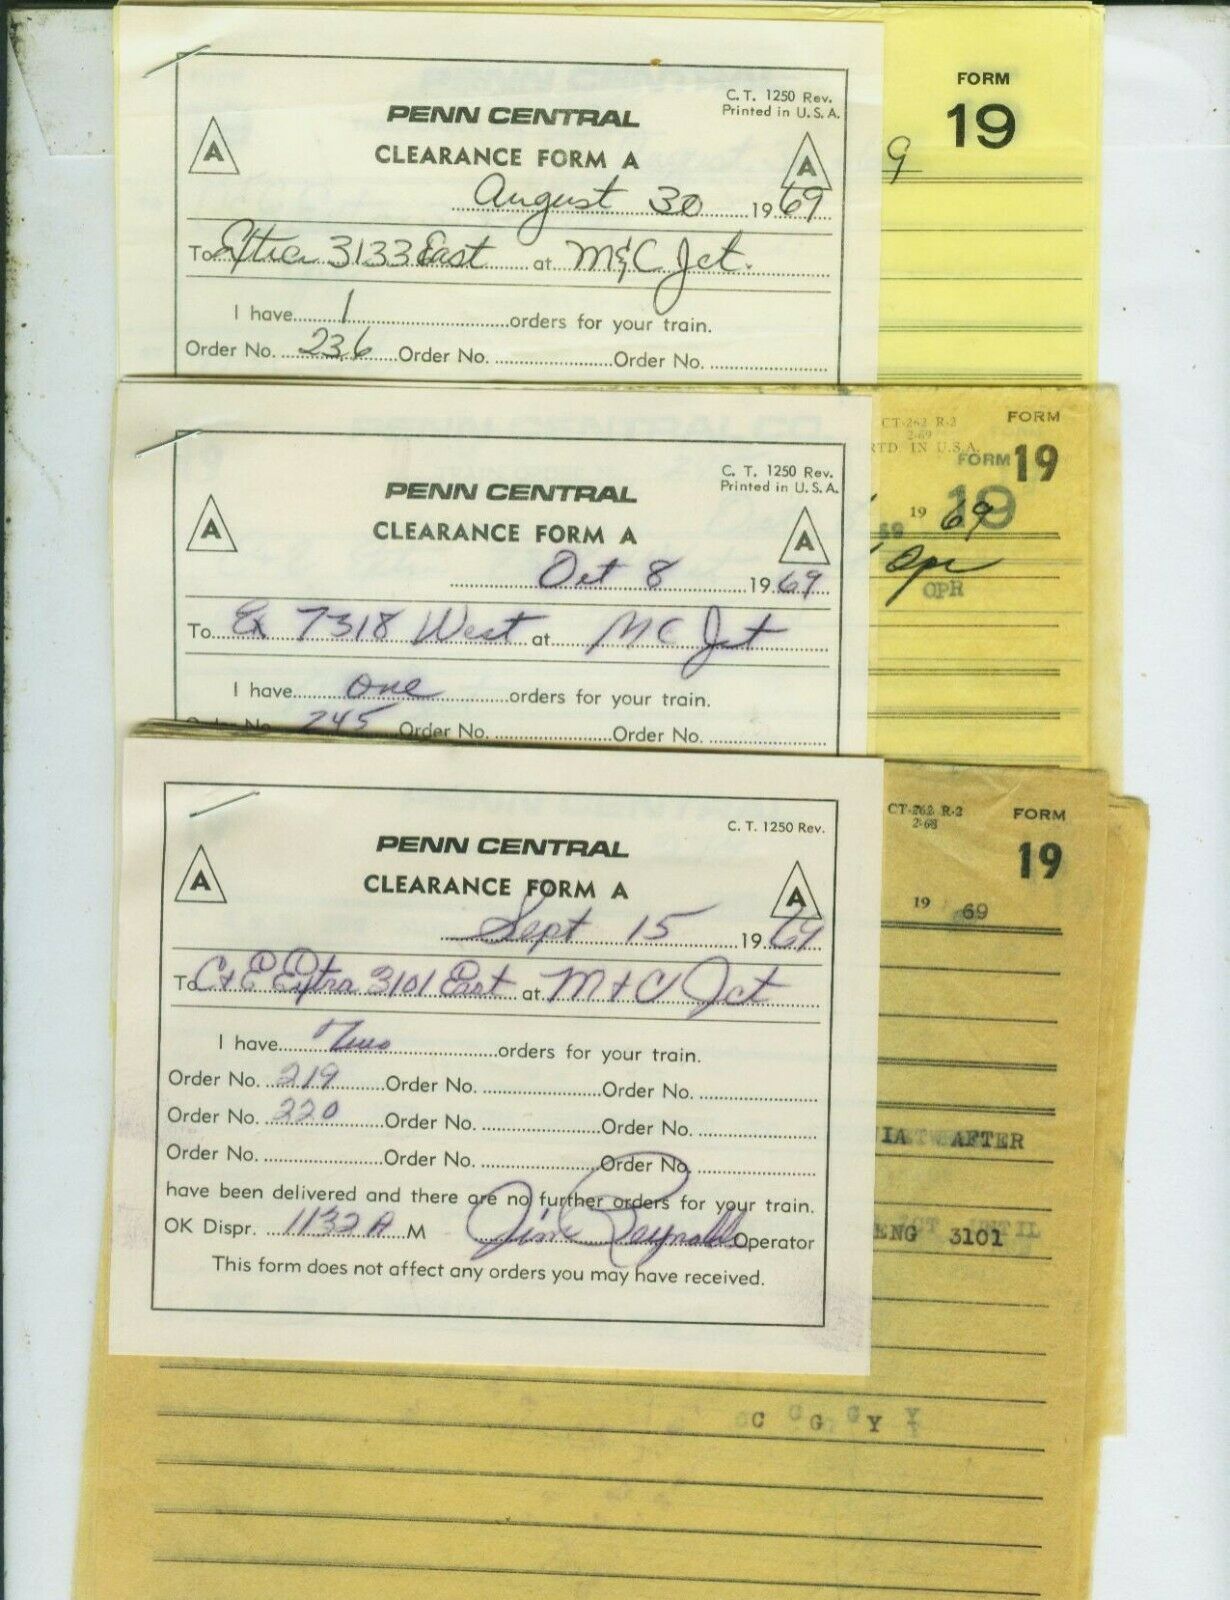 C. T. 1250 Rev.
Printed in U. S. A.
FORM
19
PENN CENTRAL
A CLEARANCE FORM A A
August 30 1969
9
To Extra 3133 East at M&C Jct.
I have 1 orders for your train.
Order No. 236 Order No. Order No.
CT-262 R-2
2-69
RTD IN U.S.A.
FORM
19
FORM
19
C. T. 1250 Rev.
Printed in U. S. A.
PENN CENTRAL
A CLEARANCE FORM A A
Oct 8 1969
19 69
69
Opr
OPR
To Ex 7318 West at MC Jct
I have one orders for your train.
Order No. 245 Order No. Order No.
CT-262 R-2
2-68
FORM
19
19 69
C. T. 1250 Rev.
PENN CENTRAL
A CLEARANCE FORM A A
Sept 15 1969
To C+E Extra 3101 East at M+C Jct
I have Two orders for your train.
Order No. 219 Order No. Order No.
Order No. 220 Order No. Order No.
Order No. Order No. Order No.
have been delivered and there are no further orders for your train.
OK Dispr. 1132 A M Jim Reynolds Operator
This form does not affect any orders you may have received.
AFTER
ENG 3101
C G Y